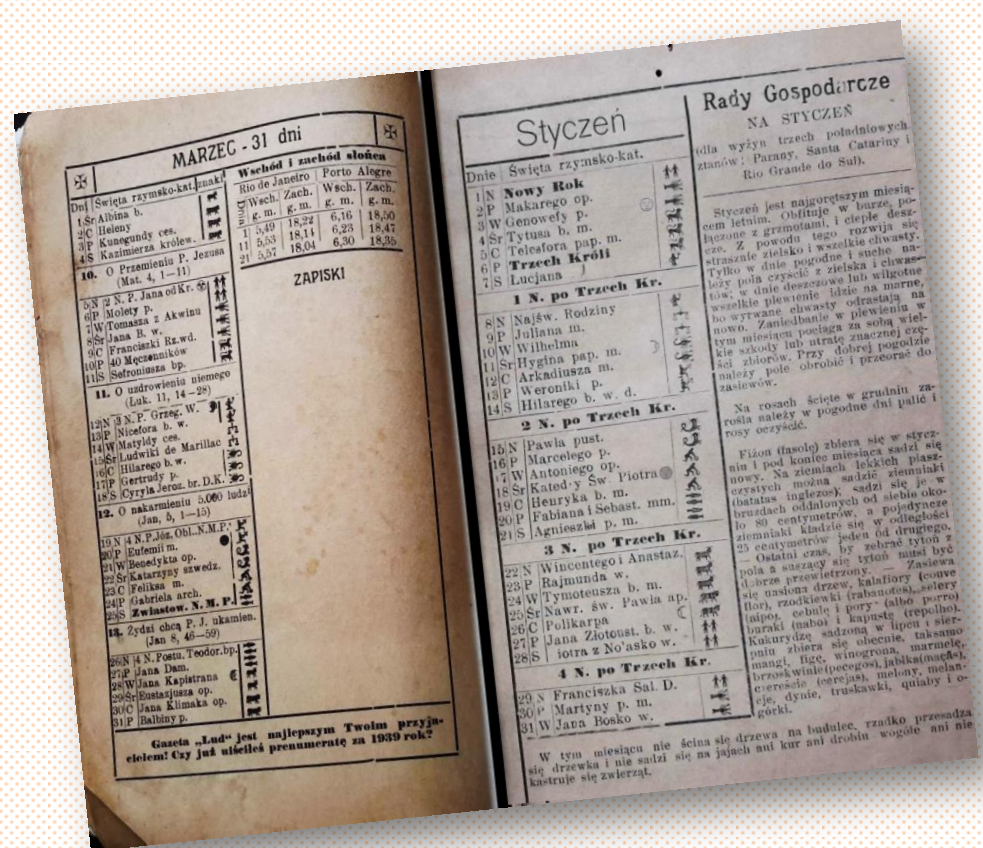 MARZEC - 31 dni
Dni Święta rzymsko-kat. znaki
1 Śr Albina b.
2 C Heleny
3 P Kunegundy ces.
4 S Kazimierza królew.
10. O Przemieniu P. Jezusa
(Mat. 4, 1—11)
5 N 2 N. P. Jana od Kr.
6 P Molety p.
7 W Tomasza z Akwinu
8 Śr Jana B. w.
9 C Franciszki Rz.wd.
10 P 40 Męczenników
11 S Sefroniusza bp.
11. O uzdrowieniu niemego
(Łuk. 11, 14—28)
12 N 3 N. P. Grzeg. W.
13 P Nicefora b. w.
14 W Matyldy ces.
15 Śr Ludwiki de Marillac
16 C Hilarego b. w.
17 P Gertrudy p.
18 S Cyryla Jeroz. br. D.K.
12. O nakarmieniu 5.000 ludzi
(Jan, 5, 1—15)
19 N 4 N.P.Józ. Obl..N.M.P.
20 P Eufemii m.
21 W Benedykta op.
22 Śr Katarzyny szwedz.
23 C Feliksa m.
24 P Gabriela arch.
25 S Zwiastow. N. M. P.
13. Żydzi chcą P. J. ukamien.
(Jan 8, 46—59)
26 N 4 N. Postu. Teodor.bp.
27 P Jana Dam.
28 W Jana Kapistrana
29 Śr Eustazjusza op.
30 C Jana Klimaka op.
31 P Balbiny p.
Wschód i zachód słońca
Rio de Janeiro Porto Alegre
Dnia Wsch. Zach. Wsch. Zach.
g. m. g. m. g. m. g. m.
1 5,49 18,22 6,16 18,50
11 5,53 18,14 6,23 18,47
21 5,57 18,04 6,30 18,35
ZAPISKI
Gazeta „Lud“ jest najlepszym Twoim przyja-
cielem! Czy już uiściłeś prenumeratę za 1939 rok?
Styczeń
Dnie Święta rzymsko-kat.
1 N Nowy Rok
2 P Makarego op.
3 W Genowefy p.
4 Śr Tytusa b. m.
5 C Telesfora pap. m.
6 P Trzech Króli
7 S Lucjana
1 N. po Trzech Kr.
8 N Najśw. Rodziny
9 P Juliana m.
10 W Wilhelma
11 Śr Hygina pap. m.
12 C Arkadiusza m.
13 P Weroniki p.
14 S Hilarego b. w. d.
2 N. po Trzech Kr.
15 N Pawła pust.
16 P Marcelego p.
17 W Antoniego op.
18 Śr Kated·y Św. Piotra
19 C Henryka b. m.
20 P Fabiana i Sebast. mm.
21 S Agnieszki p. m.
3 N. po Trzech Kr.
22 N Wincentego i Anastaz.
23 P Rajmunda w.
24 W Tymoteusza b. m.
25 Śr Nawr. św. Pawła ap.
26 C Polikarpa
27 P Jana Złotoust. b. w.
28 S iotra z No'asko w.
4 N. po Trzech Kr.
29 N Franciszka Sal. D.
30 P Martyny p. m.
31 W Jana Bosko w.
Rady Gospodarcze
NA STYCZEŃ
(dla wyżyn trzech południowych
stanów: Parany, Santa Catariny i
Rio Grande do Sul).
Styczeń jest najgorętszym miesią-
cem letnim. Obfituje w burze, po-
łączone z grzmotami, i ciepłe desz-
cze. Z powodu tego rozwija się
strasznie zielsko i wszelkie chwasty.
Tylko w dnie pogodne i suche na-
leży pola czyścić z zielska i chwas-
tów; w dnie deszczowe lub wilgotne
wszelkie plewienie idzie na marne,
bo wyrwane chwasty odrastają na
nowo. Zaniedbanie w plewieniu w
tym miesiącu pociąga za sobą wiel-
kie szkody lub utratę znacznej czę-
ści zbiorów. Przy dobrej pogodzie
należy pole obrobić i przeorać do
zasiewów.
Na rosach ścięte w grudniu za-
rośla należy w pogodne dni palić i
rosy oczyścić.
Fiżon (fasolę) zbiera się w stycz-
niu i pod koniec miesiąca sadzi się
nowy. Na ziemiach lekkich piasz-
czystych można sadzić ziemniaki
(batatas inglezos), sadzi się je w
bruzdach oddalonych od siebie oko-
ło 80 centymetrów, a pojedyncze
ziemniaki kładzie się w odległości
25 centymetrów jeden od drugiego.
— Ostatni czas, by zebrać tytoń z
pola a suszący się tytoń musi być
dobrze przewietrzony. — Zasiewa
się nasiona drzew, kalafiory (couve
flor), rzodkiewki (rabanotes), selery
(aipo), cebulę i pory· (albo porro)
buraki (nabo) i kapustę (repolho).
Kukurydzę sadzoną w lipcu i sier-
pniu zbiera się obecnie, taksamo
mangi, figę, winogrona, marmelę,
brzoskwinie (pecegos), jabłka (maçãs),
czereście (cerejas), melony, melan-
cje, dynie, truskawki, quiaby i o-
górki.
W tym miesiącu nie ścina się drzewa na budulec, rzadko przesadza
się drzewka i nie sadzi się na jajach ani kur ani drobiu wogóle ani nie
kastruje się zwierząt.